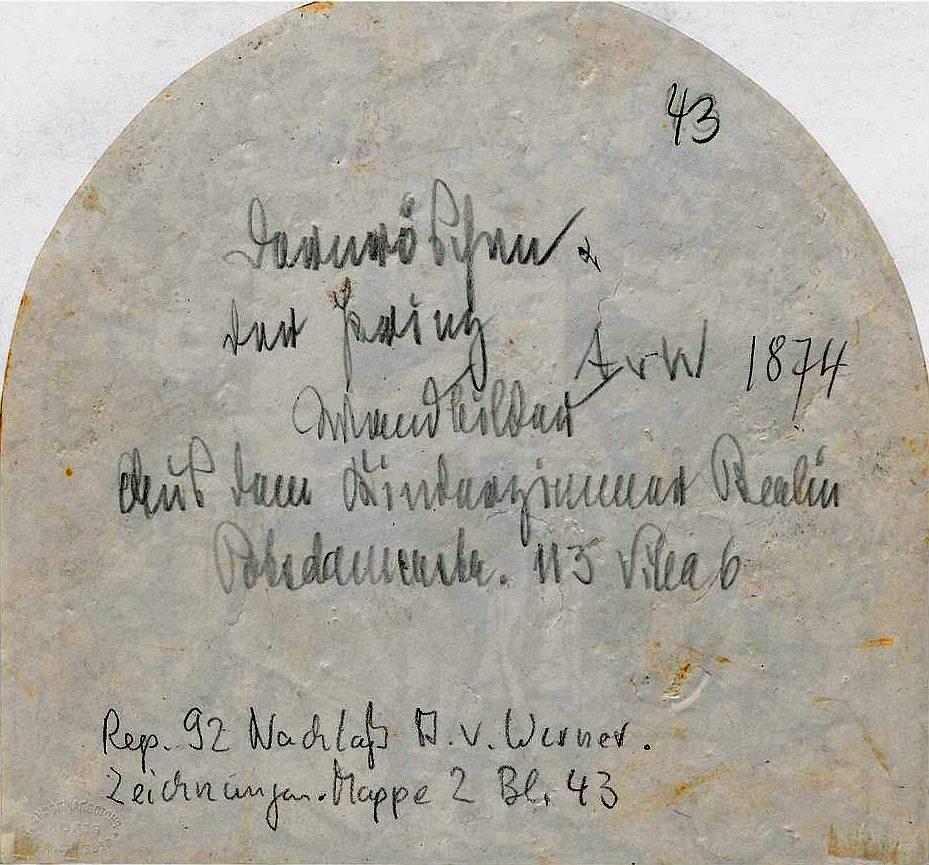 43
Dornröschen &
der Prinz
AvW 1874
Wandbilder
Aus dem Kinderzimmer Berlin
Potsdamerstr. 113 Villa 6
Rep. 92 Nachlaß A. v. Werner.
Zeichnungen. Mappe 2 Bl. 43